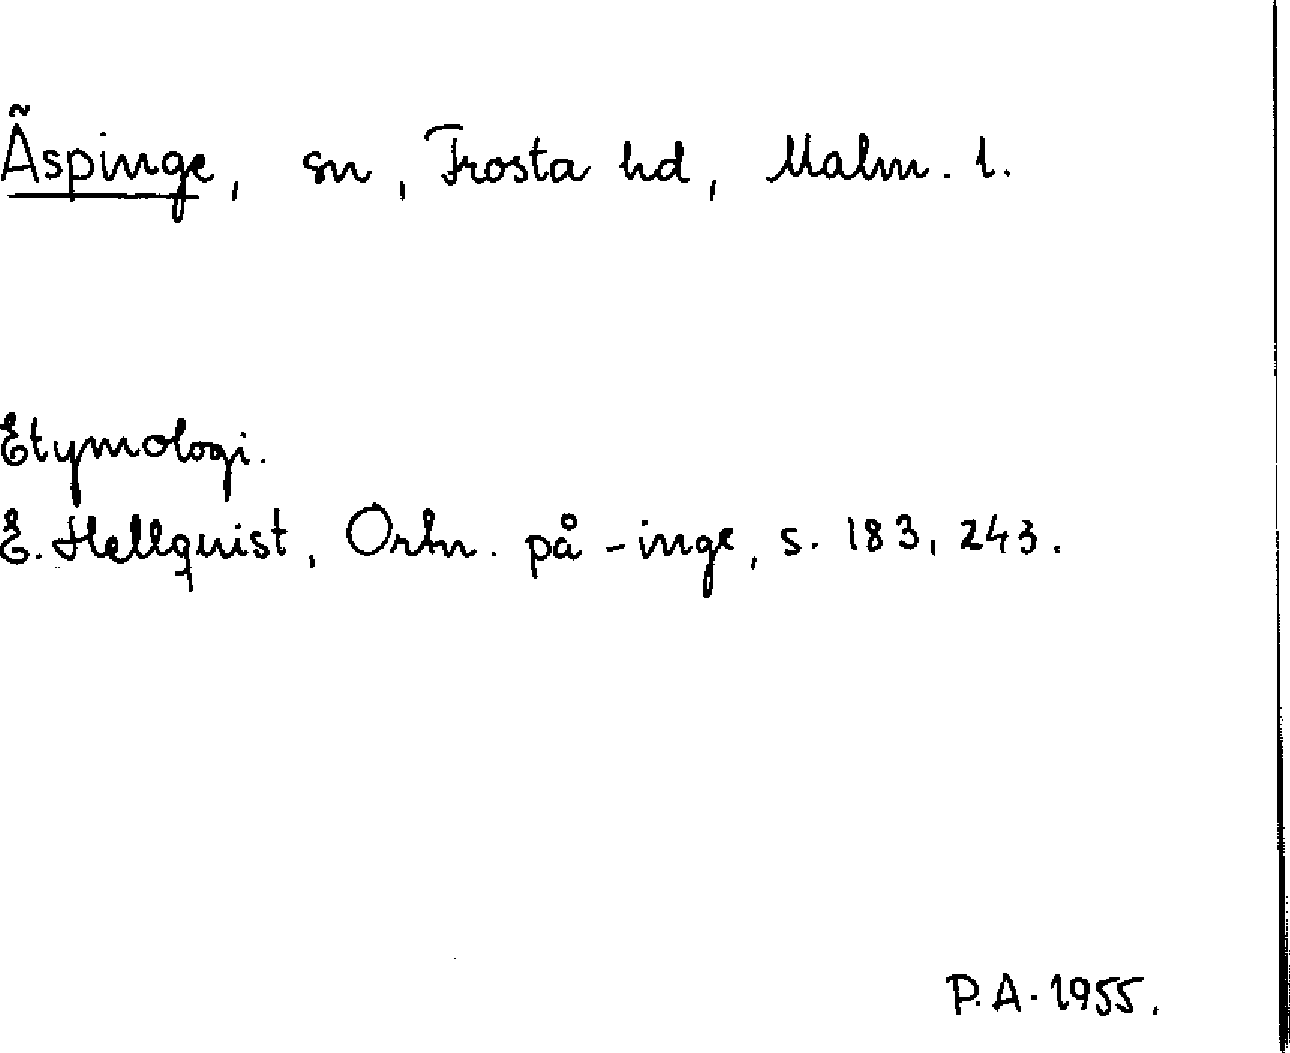 Äspinge, sn, Frosta hd, Malm. l.
Etymologi.
E. Hellquist, Ortn. på -inge, s. 183, 243.
P.A. 1955.